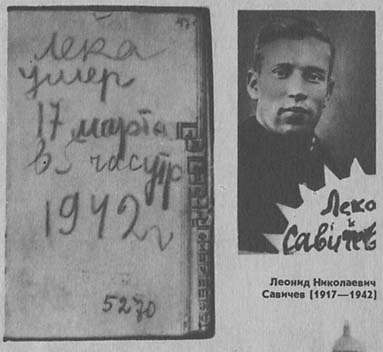 лека
умер
17 марта
в 5 час утр
1942 г
5270
Лека
Савичев
Леонид Николаевич
Савичев (1917—1942)